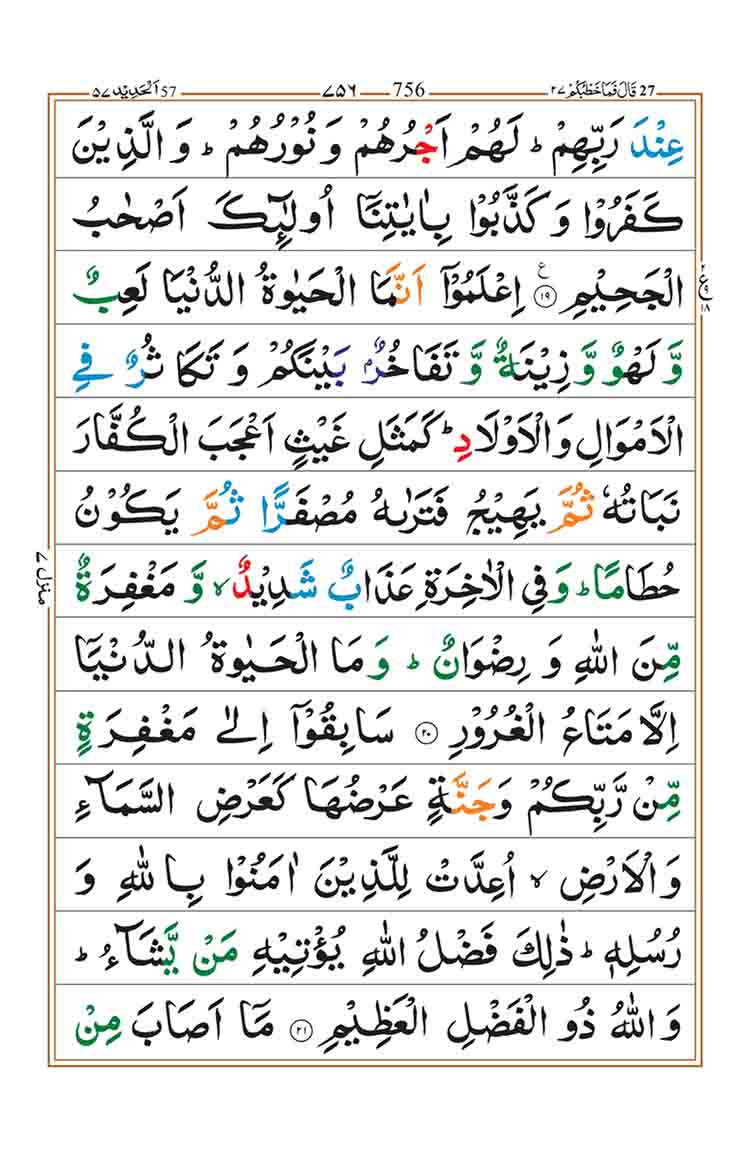 27 قَالَ فَمَا خَطْبُكُمْ ۲۷ 756 ۷۵۶ 57 اَلْحَدِيْد ۵۷
عِنْدَ رَبِّهِمْ ؕ لَهُمْ اَجْرُهُمْ وَ نُوْرُهُمْ ؕ وَ الَّذِيْنَ
كَفَرُوْا وَ كَذَّبُوْا بِاٰيٰتِنَاۤ اُولٰٓئِكَ اَصْحٰبُ
الْجَحِيْمِ ۟ع ۱۹ اِعْلَمُوْۤا اَنَّمَا الْحَيٰوةُ الدُّنْيَا لَعِبٌ
ع ۲ ۹ ۱۸
وَّ لَهْوٌ وَّ زِيْنَةٌ وَّ تَفَاخُرٌۢ بَيْنَكُمْ وَ تَكَاثُرٌ فِي
الْاَمْوَالِ وَ الْاَوْلَادِ ؕ كَمَثَلِ غَيْثٍ اَعْجَبَ الْكُفَّارَ
نَبَاتُهٗ ثُمَّ يَهِيْجُ فَتَرٰىهُ مُصْفَرًّا ثُمَّ يَكُوْنُ
حُطَامًا ؕ وَ فِي الْاٰخِرَةِ عَذَابٌ شَدِيْدٌ ۙ وَّ مَغْفِرَةٌ
منزل ۷
مِّنَ اللّٰهِ وَ رِضْوَانٌ ؕ وَ مَا الْحَيٰوةُ الدُّنْيَاۤ
اِلَّا مَتَاعُ الْغُرُوْرِ ۲۰ سَابِقُوْۤا اِلٰى مَغْفِرَةٍ
مِّنْ رَّبِّكُمْ وَ جَنَّةٍ عَرْضُهَا كَعَرْضِ السَّمَآءِ
وَ الْاَرْضِ ۙ اُعِدَّتْ لِلَّذِيْنَ اٰمَنُوْا بِاللّٰهِ وَ
رُسُلِهٖ ؕ ذٰلِكَ فَضْلُ اللّٰهِ يُؤْتِيْهِ مَنْ يَّشَآءُ ؕ
وَ اللّٰهُ ذُو الْفَضْلِ الْعَظِيْمِ ۲۱ مَاۤ اَصَابَ مِنْ